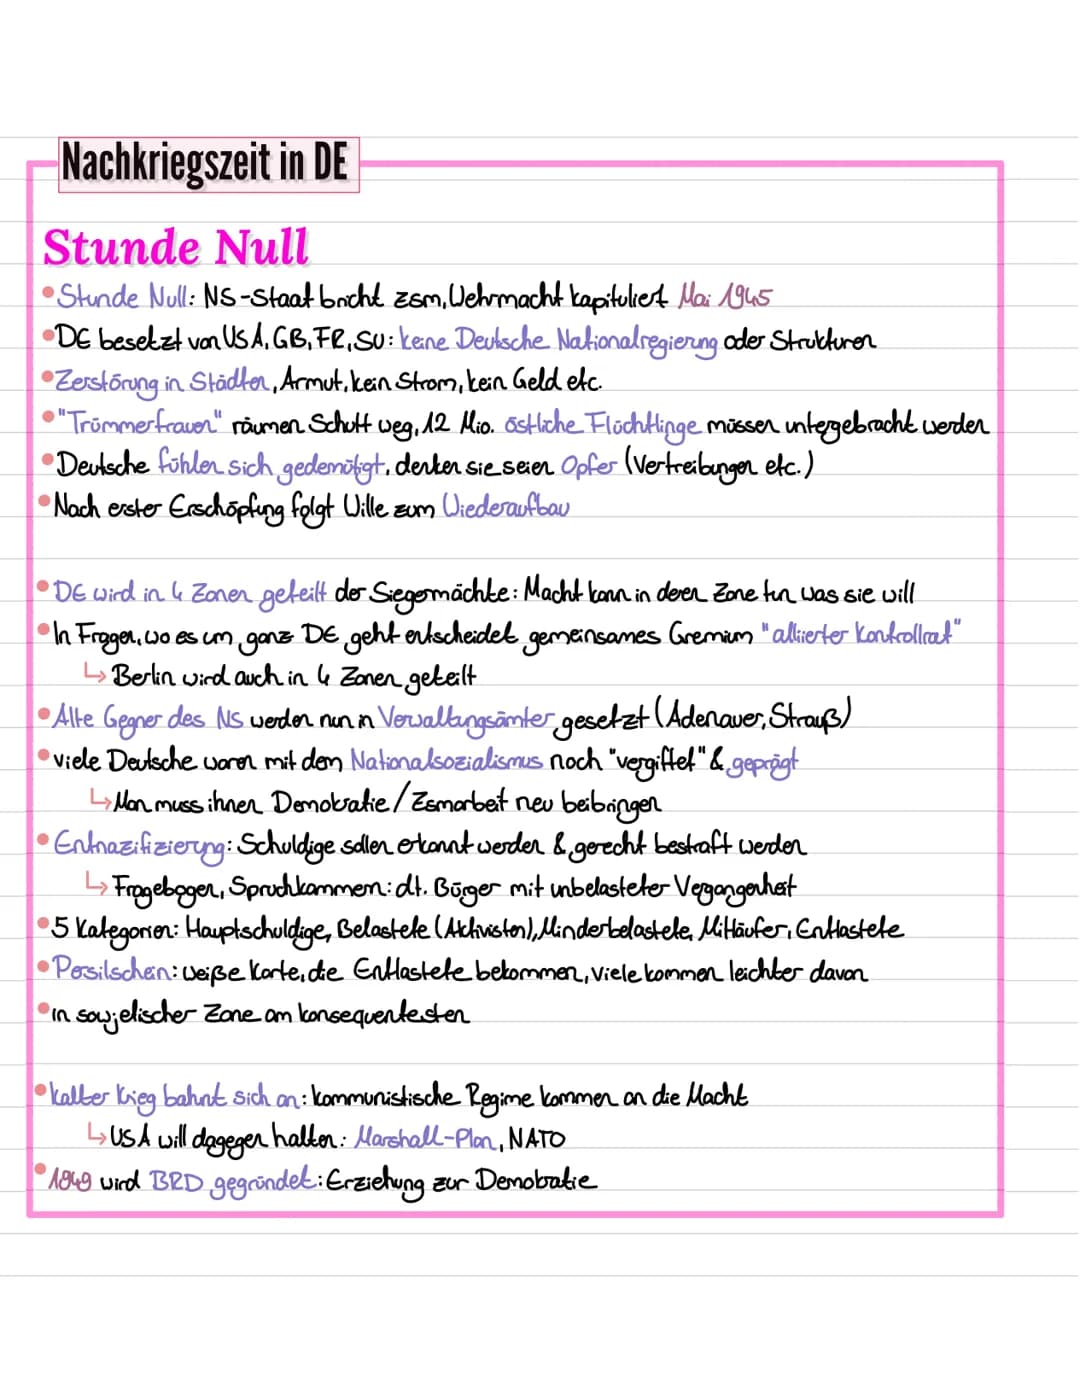 Nachkriegszeit in DE
Stunde Null
•Stunde Null: NS-Staat bricht zsm, Wehrmacht kapituliert Mai 1945
•DE besetzt von USA, GB, FR, SU: keine Deutsche Nationalregierung oder Strukturen
•Zerstörung in Städten, Armut, kein Strom, kein Geld etc.
•"Trümmerfrauen" räumen Schutt weg, 12 Mio. östliche Flüchtlinge müssen untergebracht werden
•Deutsche fühlen sich gedemütigt, denken sie seien Opfer (Vertreibungen etc.)
•Nach erster Erschöpfung folgt Wille zum Wiederaufbau
•DE wird in 4 Zonen geteilt der Siegermächte: Macht kann in deren Zone tun was sie will
•In Fragen, wo es um ganz DE geht entscheidet gemeinsames Gremium "alliierter Kontrollrat"
↳ Berlin wird auch in 4 Zonen geteilt
•Alte Gegner des NS werden nun in Verwaltungsämter gesetzt (Adenauer, Strauß)
•viele Deutsche waren mit dem Nationalsozialismus noch "vergiftet" & geprägt
↳ Man muss ihnen Demokratie/Zsmarbeit neu beibringen
•Entnazifizierung: Schuldige sollen erkannt werden & gerecht bestraft werden
↳ Fragebogen, Spruchkammern: dt. Bürger mit unbelasteter Vergangenheit
•5 Kategorien: Hauptschuldige, Belastete (Aktivisten), Minderbelastete, Mitläufer, Entlastete
•Persilschein: weiße Karte, die Entlastete bekommen, viele kommen leichter davon
•in sowjetischer Zone am konsequentesten
•kalter Krieg bahnt sich an: kommunistische Regime kommen an die Macht
↳ USA will dagegen halten: Marshall-Plan, NATO
•1949 wird BRD gegründet: Erziehung zur Demokratie